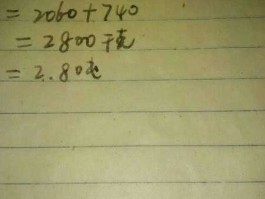 = 2060+740
= 2800千克
= 2.80